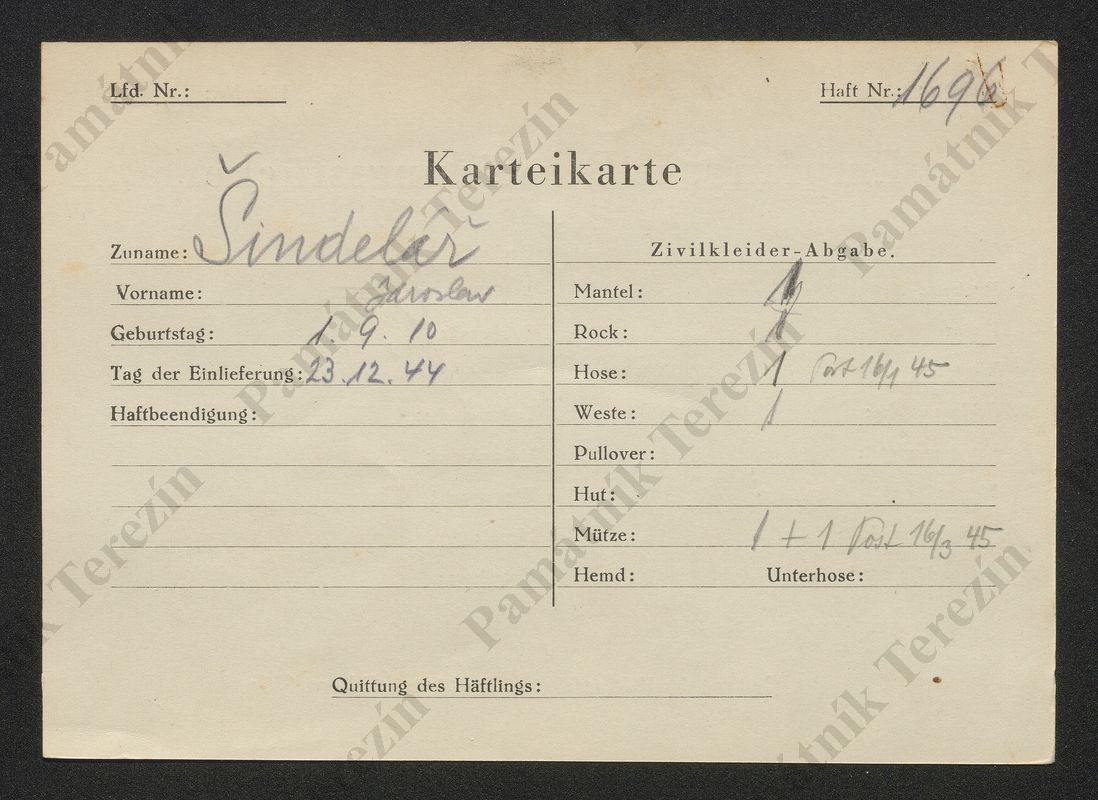 Lfd. Nr.:
Haft Nr.: 1696
Karteikarte
Zuname: Šindelář
Vorname: Jaroslav
Geburtstag: 1. 9. 10
Tag der Einlieferung: 23.12.44
Haftbeendigung:
Zivilkleider-Abgabe.
Mantel: 1
Rock: 1
Hose: 1 Post 16/1 45
Weste: 1
Pullover:
Hut:
Mütze: 1 + 1 Post 16/3 45
Hemd: Unterhose:
Quittung des Häftlings:
Památník Terezín